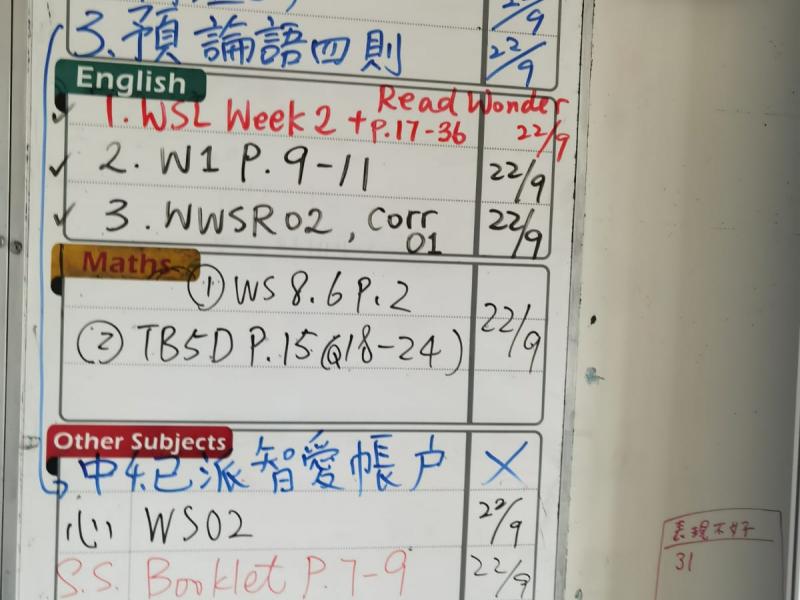 22/9
3.預論語四則 22/9
English
Read Wonder
1. WSL Week 2 + P.17-36 22/9
2. W1 P. 9-11 22/9
3. WWSR02, Corr 01 22/9
Maths
① WS 8.6 P.2
② TB5D P.15(Q18-24) 22/9
Other Subjects
中紀派智愛帳户 X
心 WS02 22/9
S.S. Booklet P.7-9 22/9
表現不好
31